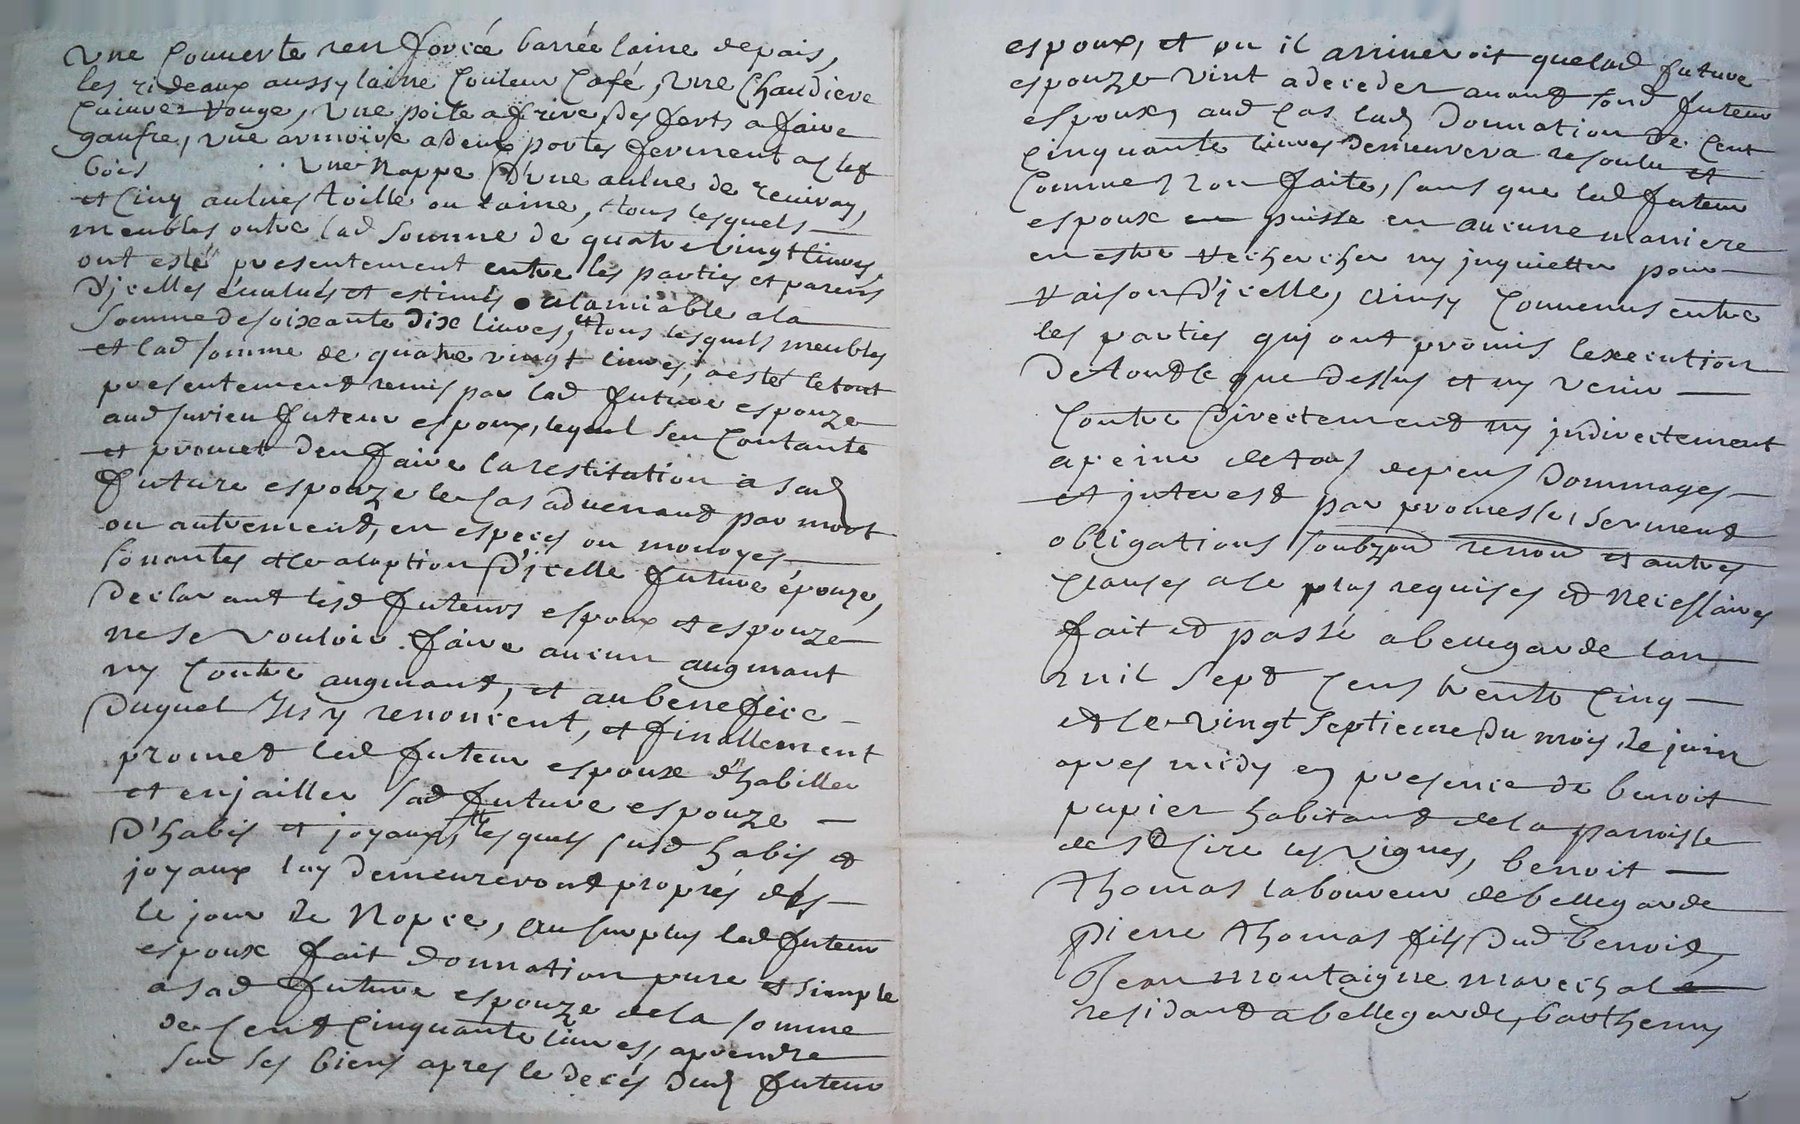 Une Couverte renforcée barrée laine depais,
les rideaux aussy laine Couleur Café, Une Chaudiere
Cuivre Rouge, une poile afrire, des ferts a faire
gaufre, une armoire adeux portes ferment a clef
bois Une Nappe D'une aulne de
et Cinq aulnes toille ou laine, tous lesquels
meubles outre lad somme de quatre vingt livres,
ont esté presentement entre les parties et parens
D'jcelles évalués et estimés alamiable ala
somme de soixante Dix livres, tous lesquels meubles
et lad somme de quatre vingt livres, a esté le tout
presentement remis par lad future espouze
aud surieu futeur espoux, lequel sen Contante
et promet den faire la restitution a sad
future espouze le Cas advenant par mort
ou autrement, en especes ou monoyes
sonantes et le aloption D'jcelle future épouze,
Declarant lesd futeurs espoux et espouze
ne se vouloir faire aucun augmant
ny Contre augmant, et au benefice
Duquel Ils y renoncent, et finallement
promet led futeur espoux d'habiller
et enjailler sad future espouze
D'habis et joyaux, lesquels susd habis et
joyaux luy demeureront propres dés
le jour de Nopce, au surplus led futeur
espoux fait donnation pure et simple
a sad future espouze de la somme
de Cent Cinquante livres, aprendre
sur ses biens apres le deces dud futeur
espoux, et ou il arriveroit quelad future
espouze vint adeceder avant sond futeur
espoux, aud Cas lad Donnation de Cent
Cinquante livres demeurera resoulue et
Comme Non faite, sans que led futeur
espoux en puisse en aucune maniere
en estre rechercher ny jnquietter pour
raison D'jcelle, ainsy Convenus entre
les parties quj ont promis lexecution
De tout ce que dessus et ny venir
Contre Directement ny jndirectement
a peine de tous depens Dommages
et jnterest par promesse, serment
obligations soubzon renon et autres
clauses a ce plus requises et Necessaires
fait et passé a bellegarde lan
mil sept Cens trente Cinq
et le vingt septieme du mois de juin
apres midy en presence de benoit
papier habitant de la parroisse
de St Cire les Vignes, benoit
Thomas laboureur de bellegarde
Pierre Thomas fils Dud benoit,
Jean montaigne marechal
residant a bellegarde, barthemy